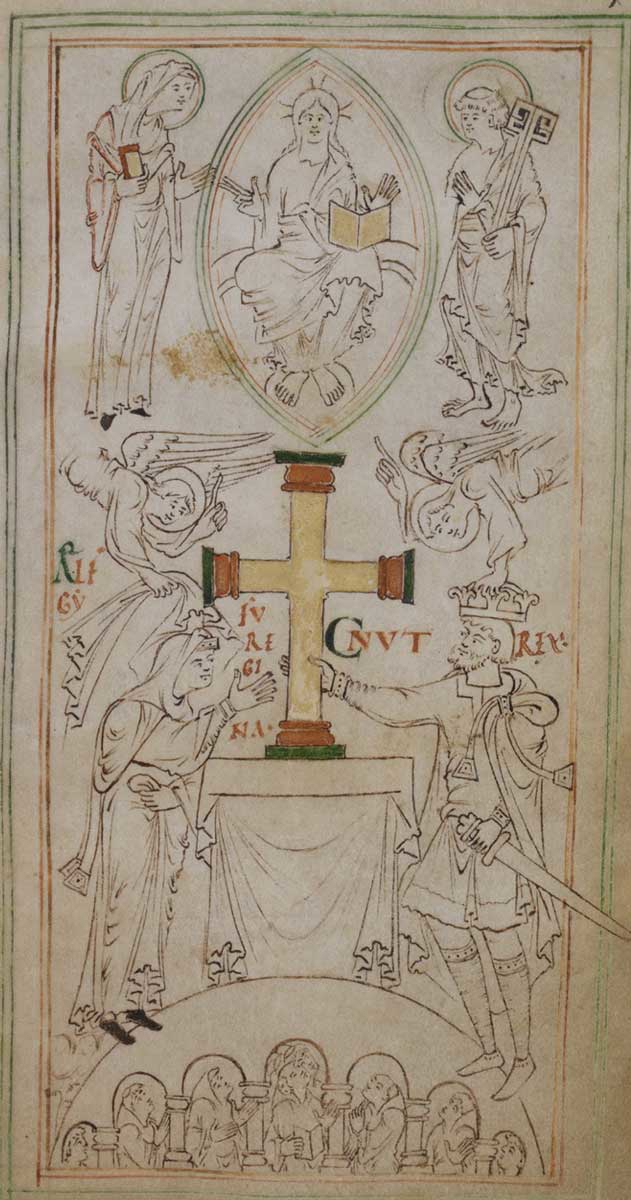 ÆLF
GẎ
FV
RE
GI
NA·
CNVT REX·